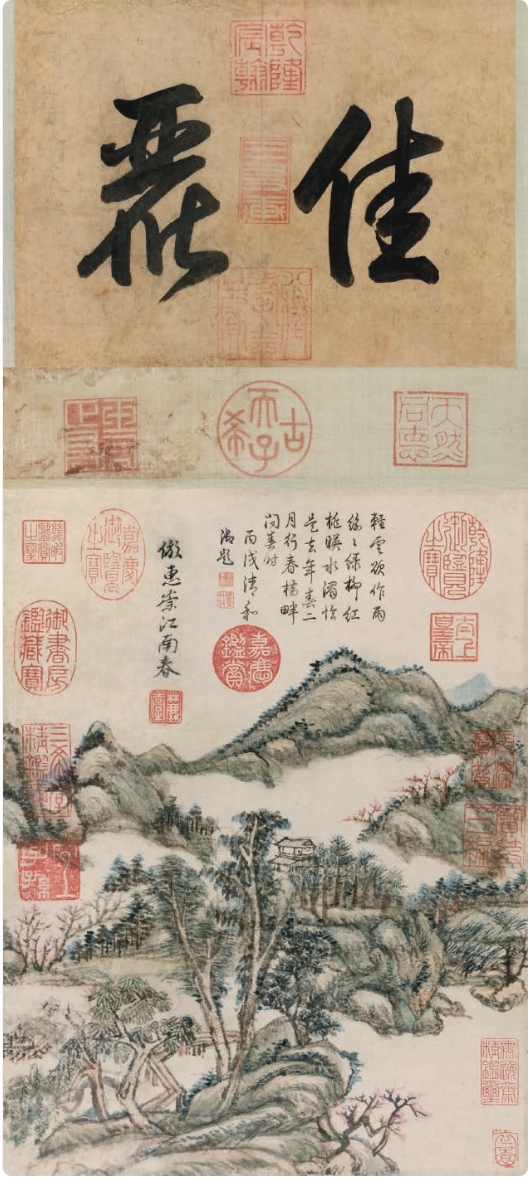 佳麗
乾隆宸翰
古希天子
乾隆御覽之寶
太上皇帝
輕雲欲作雨
絲〻綠柳紅
桃暎水湄恰
是去年春二
月行春橋畔
問春時
丙戌清和
御題
嘉慶鑑賞
倣惠崇江南春
嘉慶御覽之寶
御書房鑑藏寶
三希堂精鑑璽
宜子孫
石渠寶笈
無逸齋精鑑璽